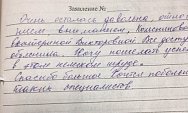 Заявление №
Очень осталась довольна отно-
шением, вниманием, Коллективом
Екатериной Викторовной. Все доступно
объяснила. Хочу пожелать успехов
в этом нелегком труде.
Спасибо большое. Хочется побольше
таких специалистов.